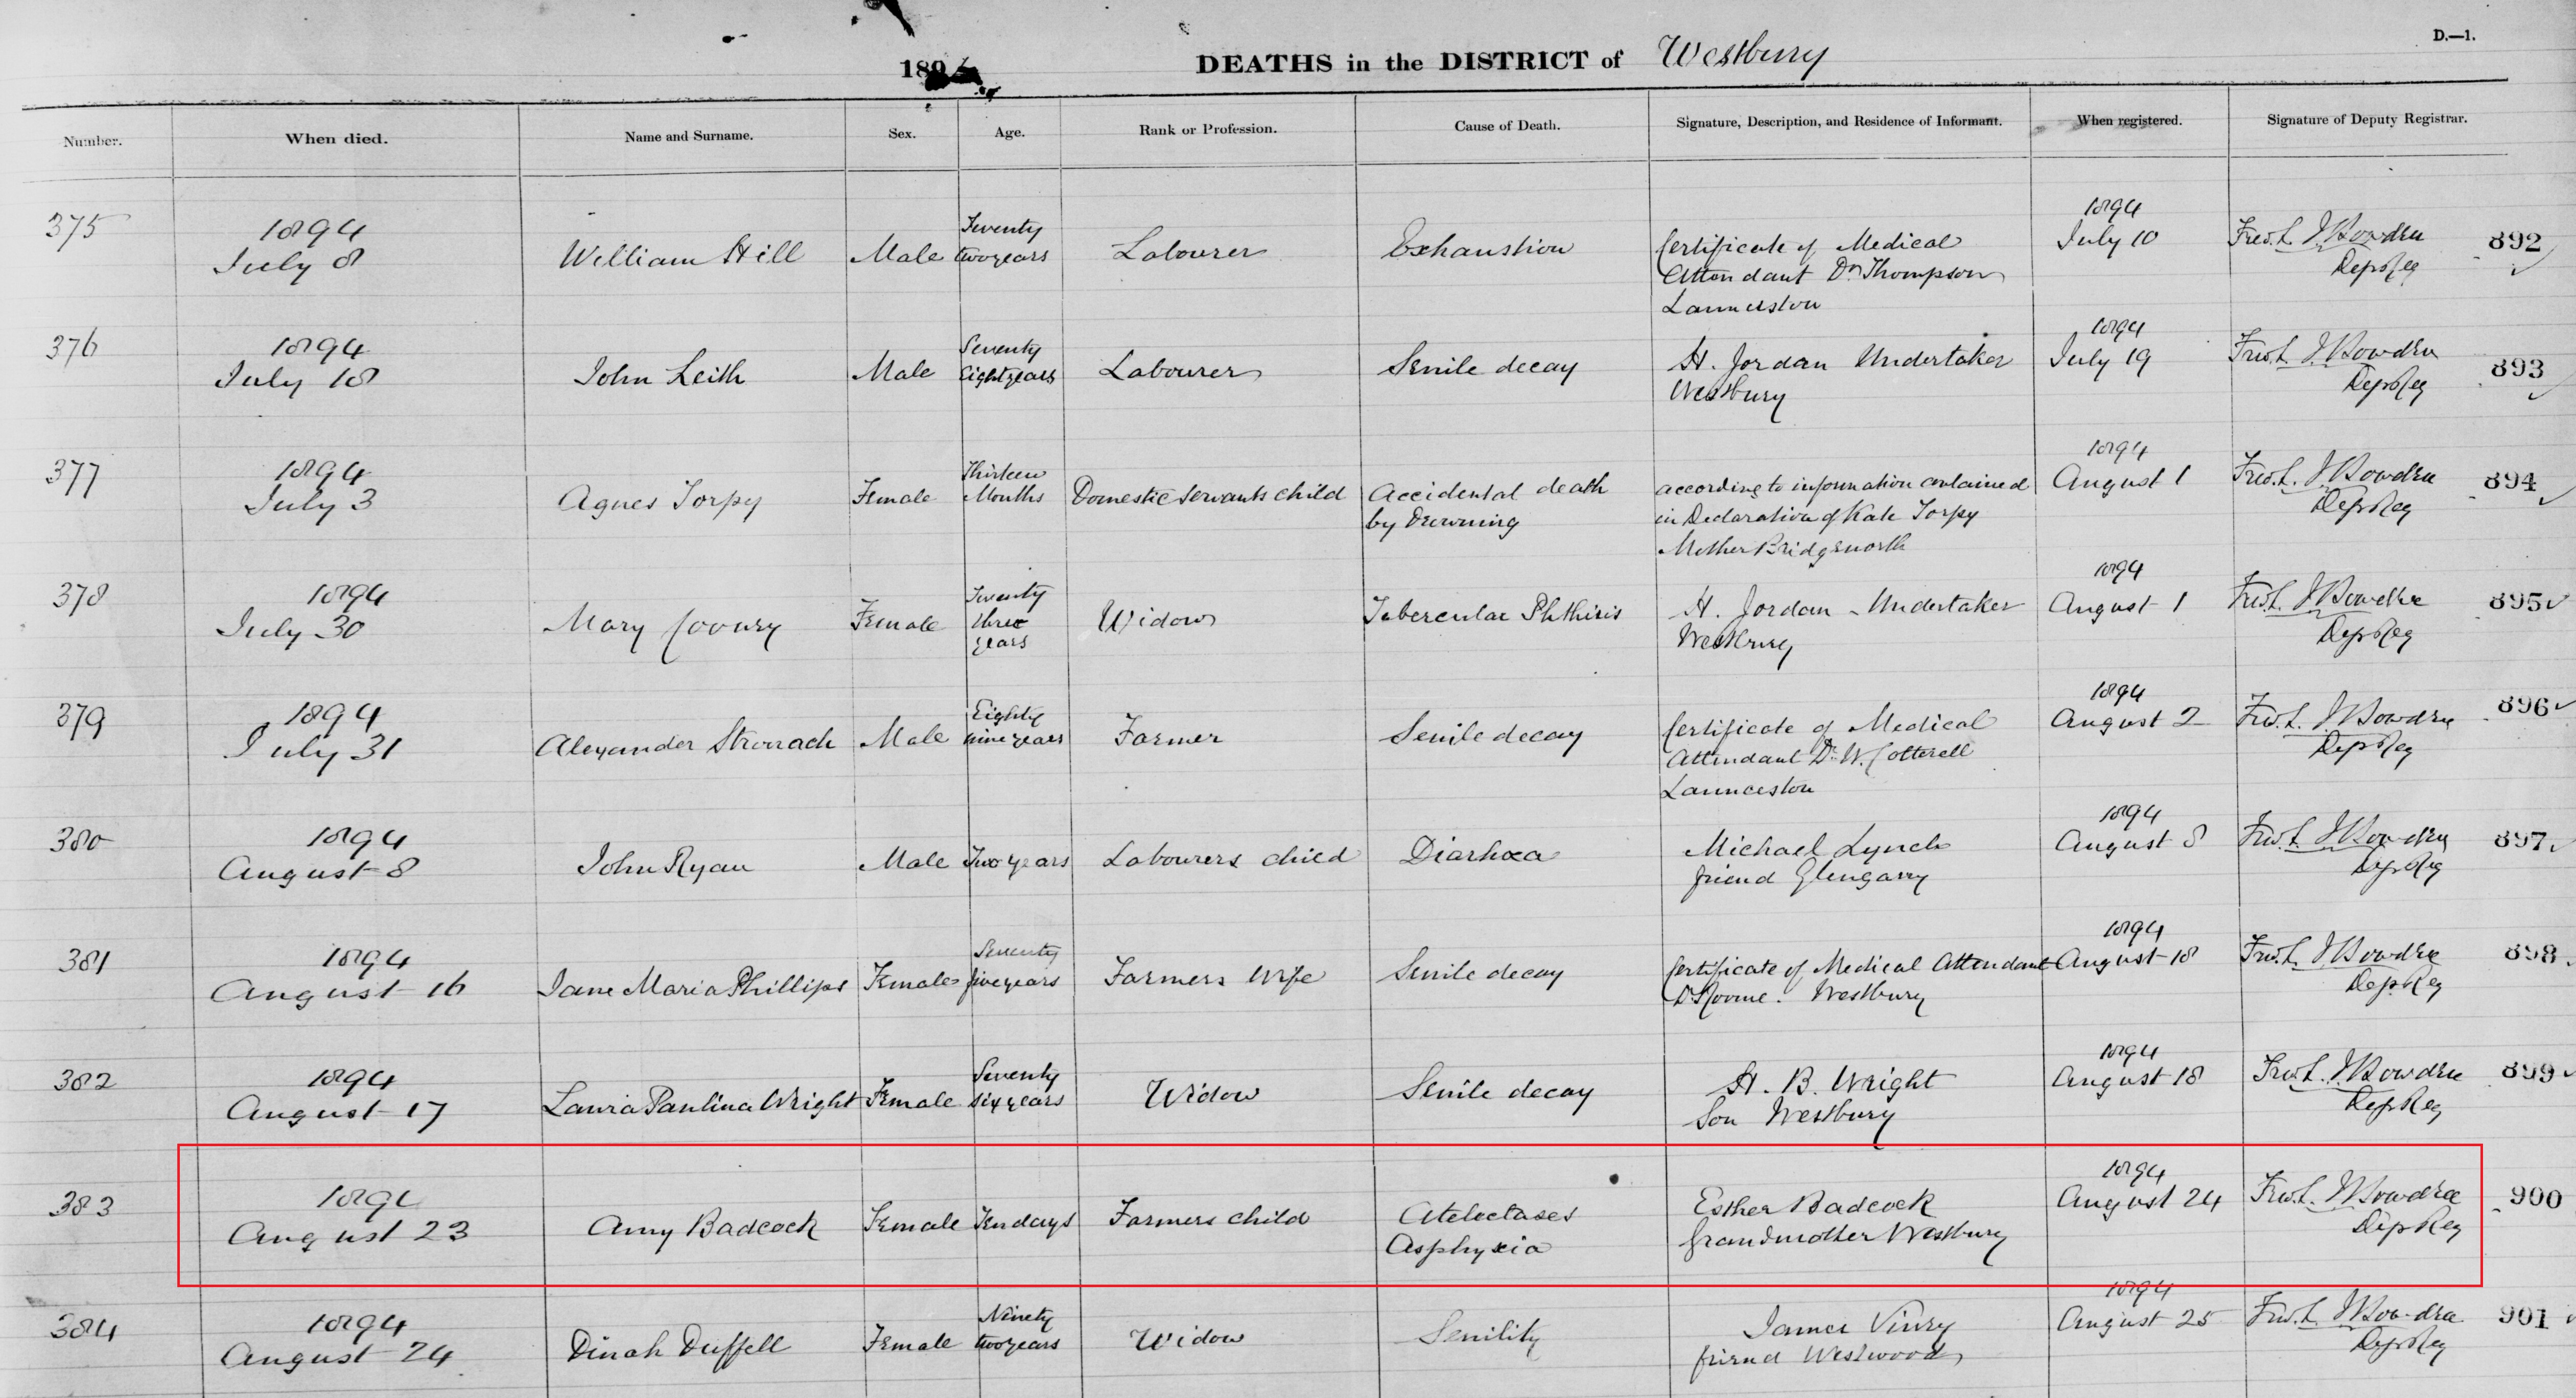 D.—1.
189 DEATHS in the DISTRICT of Westbury
Number. When died. Name and Surname. Sex. Age. Rank or Profession. Cause of Death. Signature, Description, and Residence of Informant. When registered. Signature of Deputy Registrar.
375 1894 July 8 William Hill Male Seventy two years Labourer Exhaustion Certificate of Medical Attendant Dr. Thompson Launceston 1894 July 10 Fred. L. J. Bowdler Dep Reg 892
376 1894 July 18 John Leith Male Seventy Eight years Labourer Senile decay H. Jordan Undertaker Westbury 1894 July 19 Dep Reg 893
377 1894 July 3 Agnes Torpy Female Thirteen Months Domestic Servants child Accidental death by Drowning according to information contained in Declaration of Kate Torpy Mother Bridgenorth 1894 August 1 Dep Reg 894
378 1894 July 30 Mary Female three years Widow Tubercular Phthisis H. Jordan - Undertaker Westbury 1894 August 1 Dep Reg 895
379 1894 July 31 Alexander Stronach Male Eighty nine years Farmer Senile decay Certificate of Medical Attendant Dr. W. Cotterell Launceston 1894 August 2 Dep Reg 896
380 1894 August 8 John Ryan Male Two years Labourers child Diarhœa Michael Lynch friend Glengarry 1894 August 8 Dep Reg 897
381 1894 August 16 Jane Maria Phillips Female Seventy five years Farmers Wife Senile decay Certificate of Medical Attendant Westbury 1894 August 18 Dep Reg 898
382 1894 August 17 Laura Paulina Wright Female Seventy six years Widow Senile decay H. B. Wright Son Westbury 1894 August 18 Dep Reg 899
383 1894 August 23 Amy Badcock Female Ten days Farmers child Atelectases Asphyxia Esther Badcock Grandmother Westbury 1894 August 24 Dep Reg 900
384 1894 August 24 Dinah Duffell Female Ninety two years Widow Senility James friend Westwood 1894 August 25 Dep Reg 901